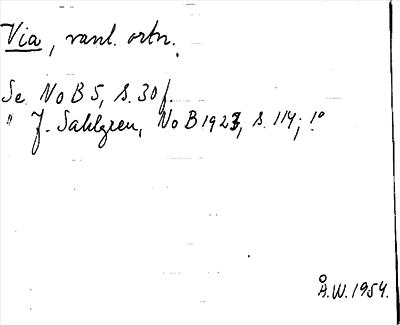 Via, vanl. ortn.
Se NoB 5, s. 30 f.
" J. Sahlgren, NoB 1923, s. 114; 1º
Å.W. 1954.